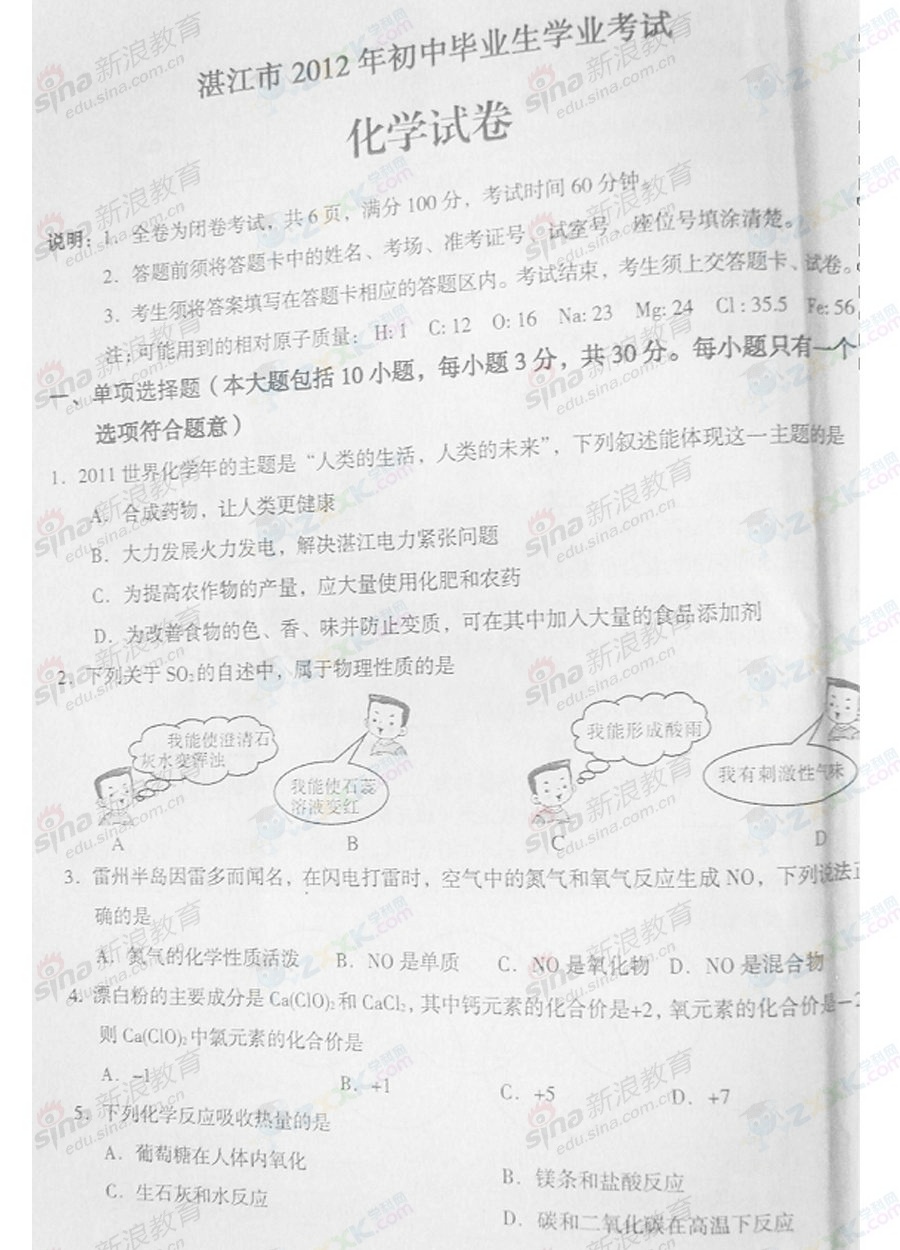 湛江市 2012 年初中毕业生学业考试
化学试卷
说明：1．全卷为闭卷考试，共 6 页，满分 100 分，考试时间 60 分钟。
2．答题前须将答题卡中的姓名、考场、准考证号、试室号、座位号填涂清楚。
3．考生须将答案填写在答题卡相应的答题区内。考试结束，考生须上交答题卡、试卷。
注：可能用到的相对原子质量：H: 1 C: 12 O: 16 Na: 23 Mg: 24 Cl : 35.5 Fe: 56
一、单项选择题（本大题包括 10 小题，每小题 3 分，共 30 分。每小题只有一个
选项符合题意）
1．2011 世界化学年的主题是“人类的生活，人类的未来”，下列叙述能体现这一主题的是
A．合成药物，让人类更健康
B．大力发展火力发电，解决湛江电力紧张问题
C．为提高农作物的产量，应大量使用化肥和农药
D．为改善食物的色、香、味并防止变质，可在其中加入大量的食品添加剂
2．下列关于 SO₂的自述中，属于物理性质的是
我能使澄清石
灰水变浑浊
我能使石蕊
溶液变红
我能形成酸雨
我有刺激性气味
A B C D
3．雷州半岛因雷多而闻名，在闪电打雷时，空气中的氮气和氧气反应生成 NO，下列说法正
确的是
A．氮气的化学性质活泼 B．NO 是单质 C．NO 是氧化物 D．NO 是混合物
4．漂白粉的主要成分是 Ca(ClO)₂和 CaCl₂，其中钙元素的化合价是+2，氧元素的化合价是−2
则 Ca(ClO)₂中氯元素的化合价是
A．−1 B．+1 C．+5 D．+7
5．下列化学反应吸收热量的是
A．葡萄糖在人体内氧化 B．镁条和盐酸反应
C．生石灰和水反应 D．碳和二氧化碳在高温下反应
sina 新浪教育
edu.sina.com.cn
ZXXK.com 学科网